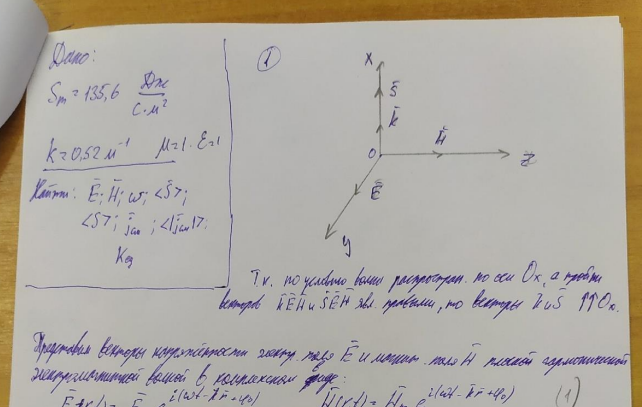 Дано:
Sm = 135,6 Дж/с·м²
k = 0,52 м⁻¹ μ=1 · ε=1
Найти: Ē; H̄; ω; <S̄>;
<S>; j̄см; <|j̄см|>;
Kэд
1
X
S̄
k̄
H̄
O
Z
Ē
У
Т.к. по условию волны распростран. по оси Ox, а тройки
векторов k̄ĒH̄ и S̄ĒH̄ явл. правыми, то векторы k и S ↑↑Ox.
Представим векторы напряжённости электр. поля Ē и магнитн. поля H̄ плоской гармонической
электромагнитной волной в комплексном виде:
(1)